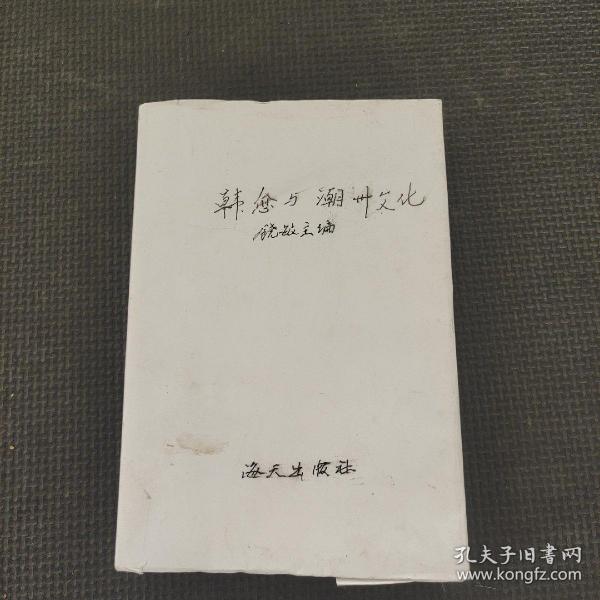 韩愈与潮州文化
饶敏主编
海天出版社
孔夫子旧书网
www.kongfz.com